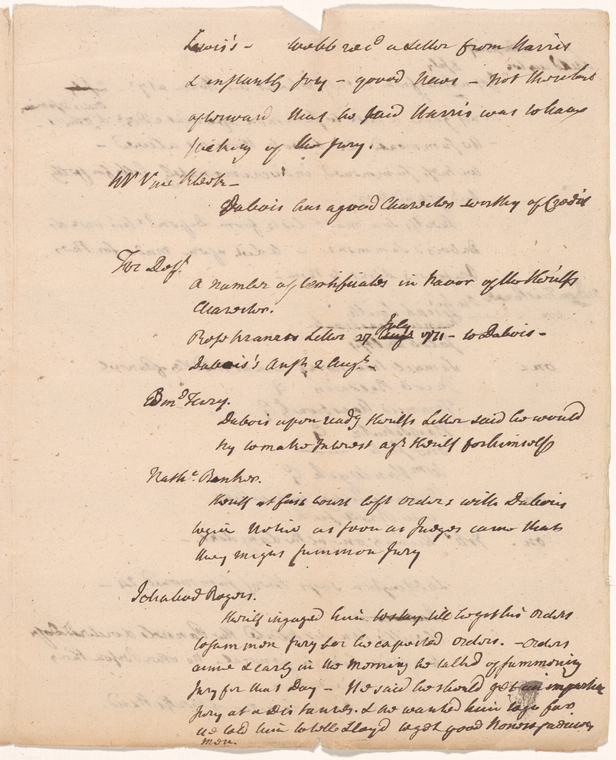 Lewis's - Webb recd a Letter from Harris
& instantly Jury - good News - not
afterward that he said Harris was to have
picking of the Jury.
Mr Vne Kleek -
Dubois has a good Character worthy of Credit
For Deft.
A number of Certificates in Favor of the Sheriffs
Character.
Letter 27 July 1771 - to Dubois -
Dubois's Ansr 2 Augt.
Dubois upon readg Sheriffs Letter said he would
try to make Interest agt Sheriff for himself
Nathl.
Sheriff at first Court left orders with Dubois
to give Notice as soon as Judges came that
they might summon Jury
Ichabod Rogers.
Sheriff ingaged him to stay till he got his Orders
to summon Jury for he expected orders. - Orders
came & early in the Morning he talked of summoning
Jury for that Day - He said he should get an impartial
Jury at a distance. & he wanted him to go far
he told him to tell Lloyd to get good honest
men.